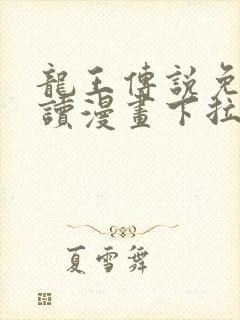 龍王傳說免
讀漫畫下拉
夏雪舞